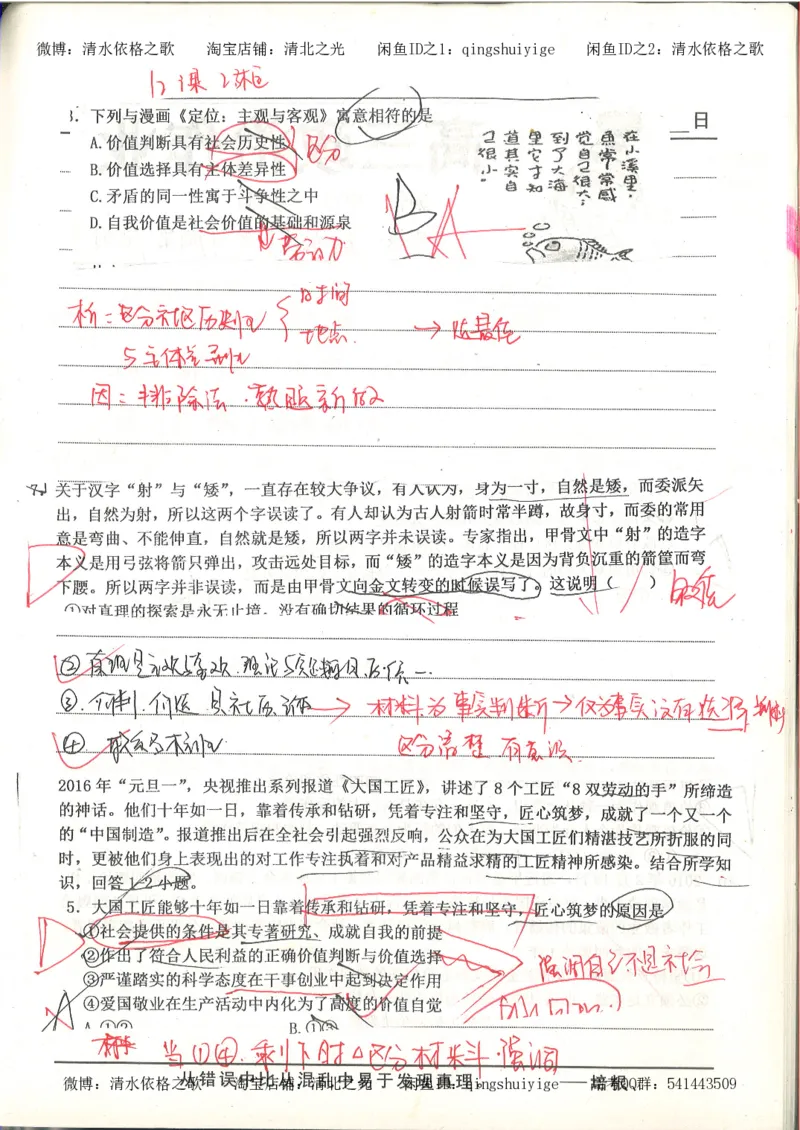 微博：清水依格之歌 淘宝店铺：清北之光 闲鱼ID之1：qingshuiyige 闲鱼ID之2：清水依格之歌
12课2框
日
3．下列与漫画《定位：主观与客观》寓意相符的是
A.价值判断具有社会历史性
B.价值选择具有主体差异性
区分
C.矛盾的同一性寓于斗争性之中
D.自我价值是社会价值的基础和源泉
在小溪里，
鱼常常感
觉自己很大；
到了大海
里它才知
道其实自
己很小。
B
A
析：区分社区历判
时间
地点
→
与主体差
因：排除法．
关于汉字“射”与“矮”，一直存在较大争议，有人认为，身为一寸，自然是矮，而委派矢
出，自然为射，所以这两个字误读了。有人却认为古人射箭时常半蹲，故身寸，而委的常用
意是弯曲、不能伸直，自然就是矮，所以两字并未误读。专家指出，甲骨文中“射”的造字
本义是用弓弦将箭只弹出，攻击远处目标，而“矮”的造字本义是因为背负沉重的箭筐而弯
下腰。所以两字并非误读，而是由甲骨文向金文转变的时候误写了。这说明（ ）
①对真理的探索是永无止境，没有确切结果的循环过程
②真理是主观与客观．理论与实践
③．
→材料为事实判断→仅为事实没有选择
④．
区分清楚 有意识
2016年“元旦一”，央视推出系列报道《大国工匠》，讲述了8个工匠“8双劳动的手”所缔造
的神话。他们十年如一日，靠着传承和钻研，凭着专注和坚守，匠心筑梦，成就了一个又一个
的“中国制造”。报道推出后在全社会引起强烈反响，公众在为大国工匠们精湛技艺所折服的同
时，更被他们身上表现出的对工作专注执着和对产品精益求精的工匠精神所感染。结合所学知
识，回答1-2小题。
5．大国工匠能够十年如一日靠着传承和钻研，凭着专注和坚守，匠心筑梦的原因是
①社会提供的条件是其专著研究、成就自我的前提
②作出了符合人民利益的正确价值判断与价值选择
③严谨踏实的科学态度在干事创业中起到决定作用
④爱国敬业在生产活动中内化为了高度的价值自觉
强调自己不是社会
A
A.①②
B.①③
当①④．剩下时△区分材料．强调
从错误中比从混乱中易于发现真理。——培根
微博：清水依格之歌 淘宝店铺：清北之光 闲鱼ID：qingshuiyige QQ群：541443509